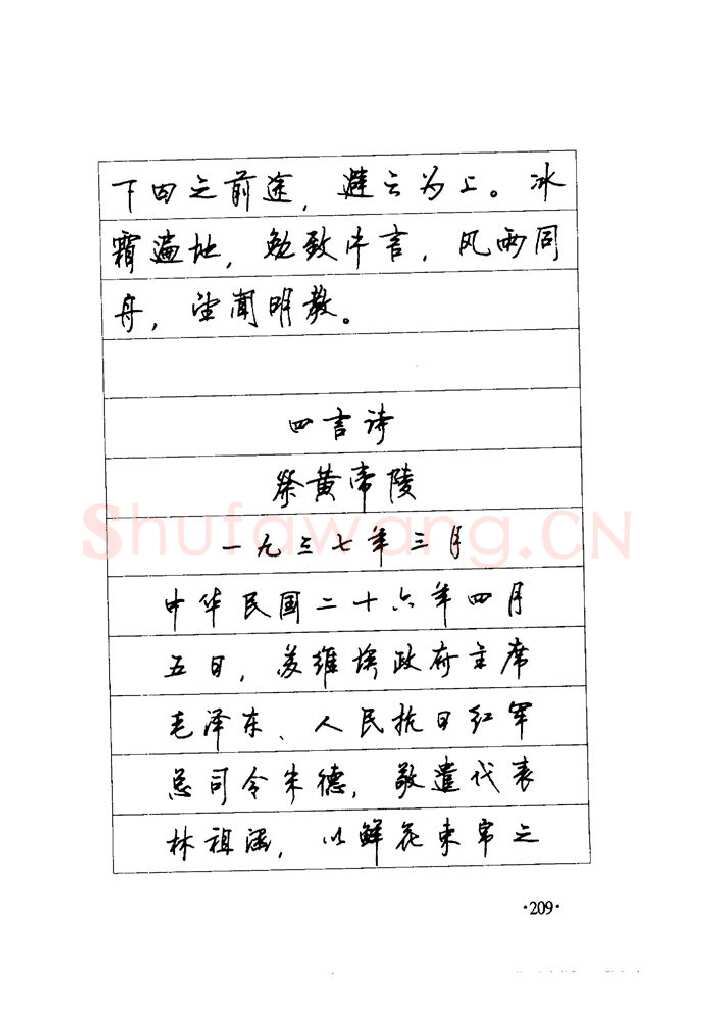 下田之前途，避云为上。冰
霜遍地，勉致片言，风雨同
舟，望闻明教。
四言诗
祭黄帝陵
一九三七年三月
中华民国二十六年四月
五日，苏维埃政府主席
毛泽东、人民抗日红军
总司令朱德，敬遣代表
林祖涵，以鲜花束帛之
Shufawang.CN
·209·